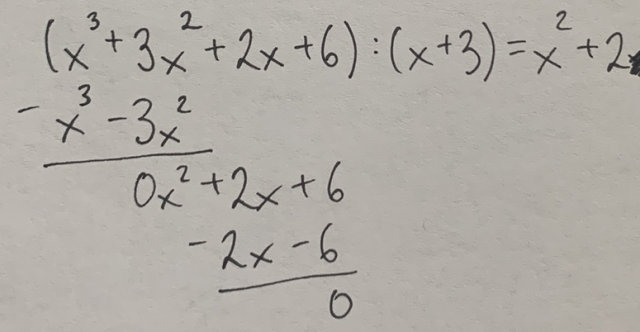 (x³+3x²+2x+6):(x+3)=x²+2
-x³-3x²
0x²+2x+6
-2x-6
0